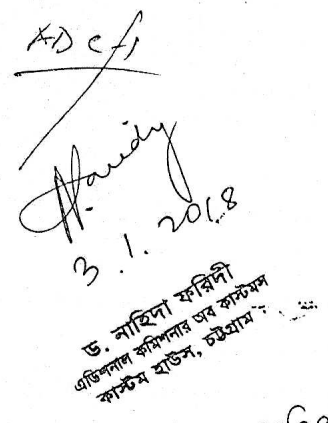 3.1.2018
ড. নাহিদা ফরিদী
এডিশনাল কমিশনার অব কাস্টমস
কাস্টম হাউস, চট্টগ্রাম